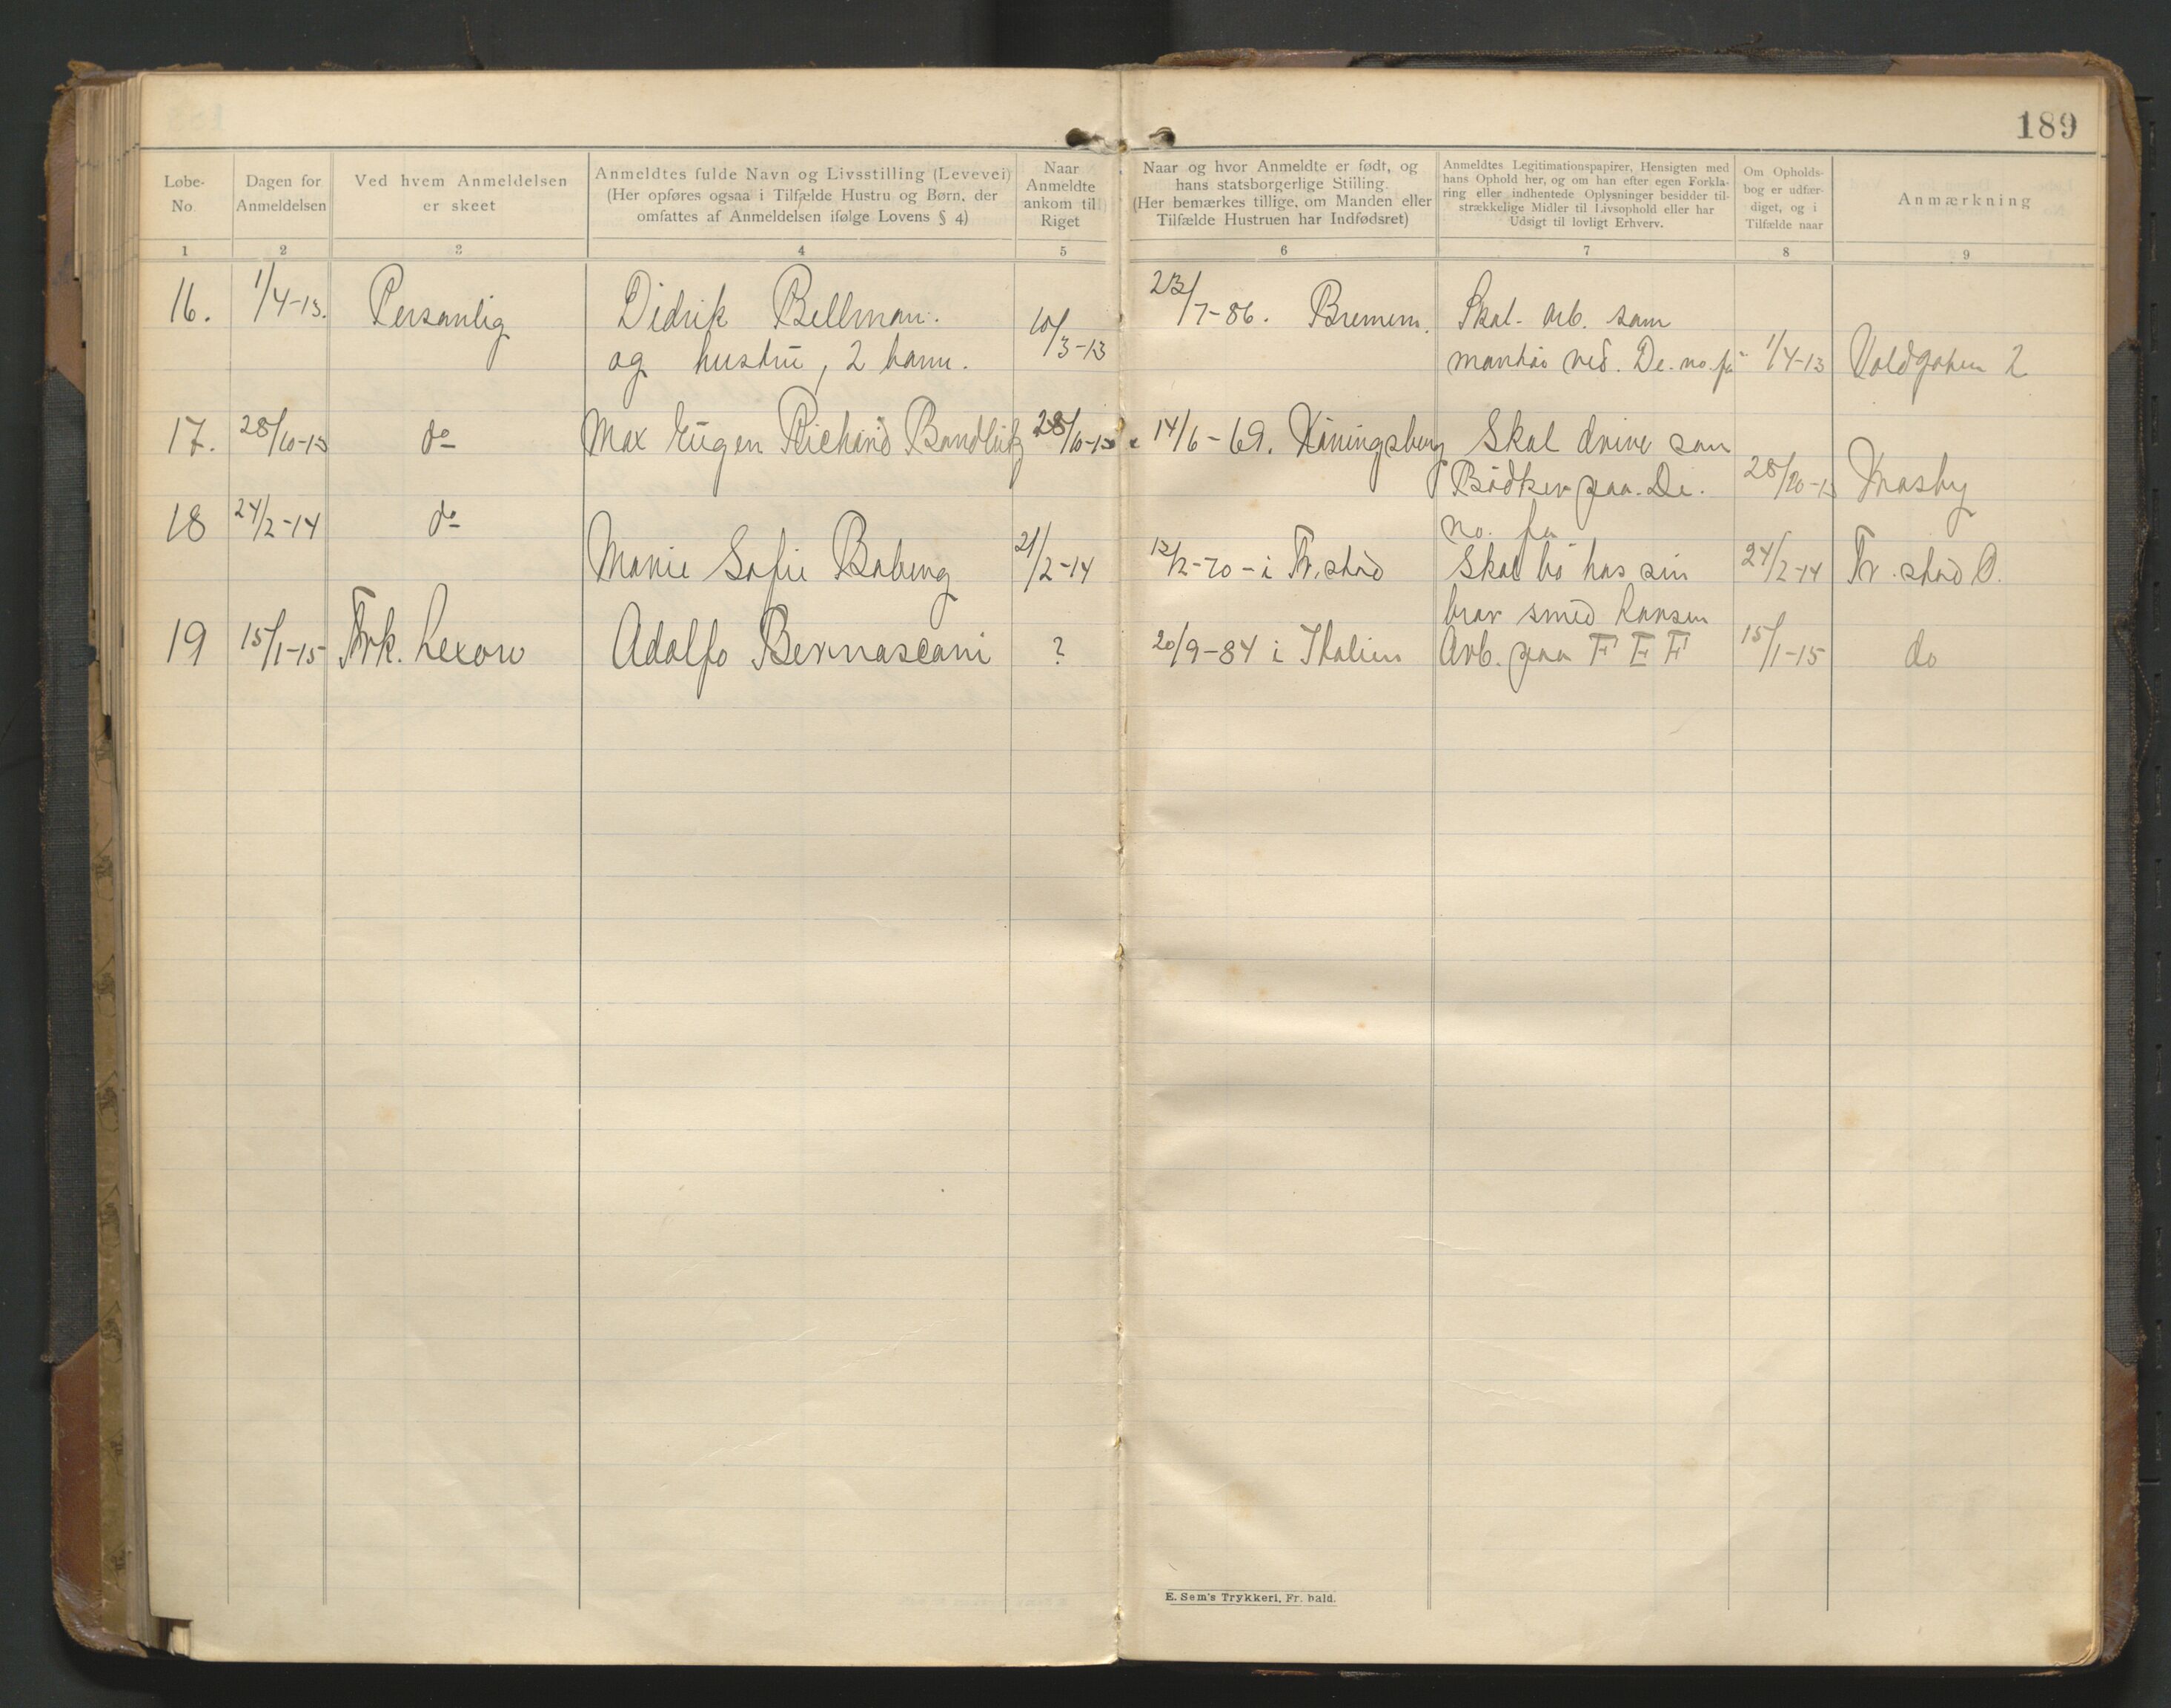 189
Løbe-
No.
Dagen for
Anmeldelsen
Ved hvem Anmeldelsen
er skeet
Anmeldtes fulde Navn og Livsstilling (Levevei)
(Her opføres ogsaa i Tilfælde Hustru og Børn, der
omfattes af Anmeldelsen ifølge Lovens § 4)
Naar
Anmeldte
ankom til
Riget
Naar og hvor Anmeldte er født, og
hans statsborgerlige Stilling.
(Her bemærkes tillige, om Manden eller
Tilfælde Hustruen har Indfødsret)
Anmeldtes Legitimationspapirer, Hensigten med
hans Ophold her, og om han efter egen Forkla-
ring eller indhentede Oplysninger besidder til-
strækkelige Midler til Livsophold eller har
Udsigt til lovligt Erhverv.
Om Opholds-
bog er udfær-
diget, og i
Tilfælde naar
Anmærkning
1 2 3 4 5 6 7 8 9
16. 1/4-13. Personlig Didrik Bellman. 10/3-13 23/7-86. Bremem. Skal arb. som
og hustru, 2 barn. ved. De. no. fa 1/4-13 Voldgaten 2
17. 28/10-13 do Max Eugen Richard 28/10-13 14/6-69. Köningsberg Skal drive som
Bödker paa. De. 28/10-13
no. fa
18 24/2-14 do Marie Sofie Boberg 21/2-14 12/2-70 - i Fr.stad Skal bo hos sin 24/2-14 Fr. stad O.
bror smed Hansen
19 15/1-15 Frk. Lexow Adolfo Bernascani ? 20/9-84 i Italien Arb. paa F E F 15/1-15 do
E. Sem's Trykkeri, Fr. hald.